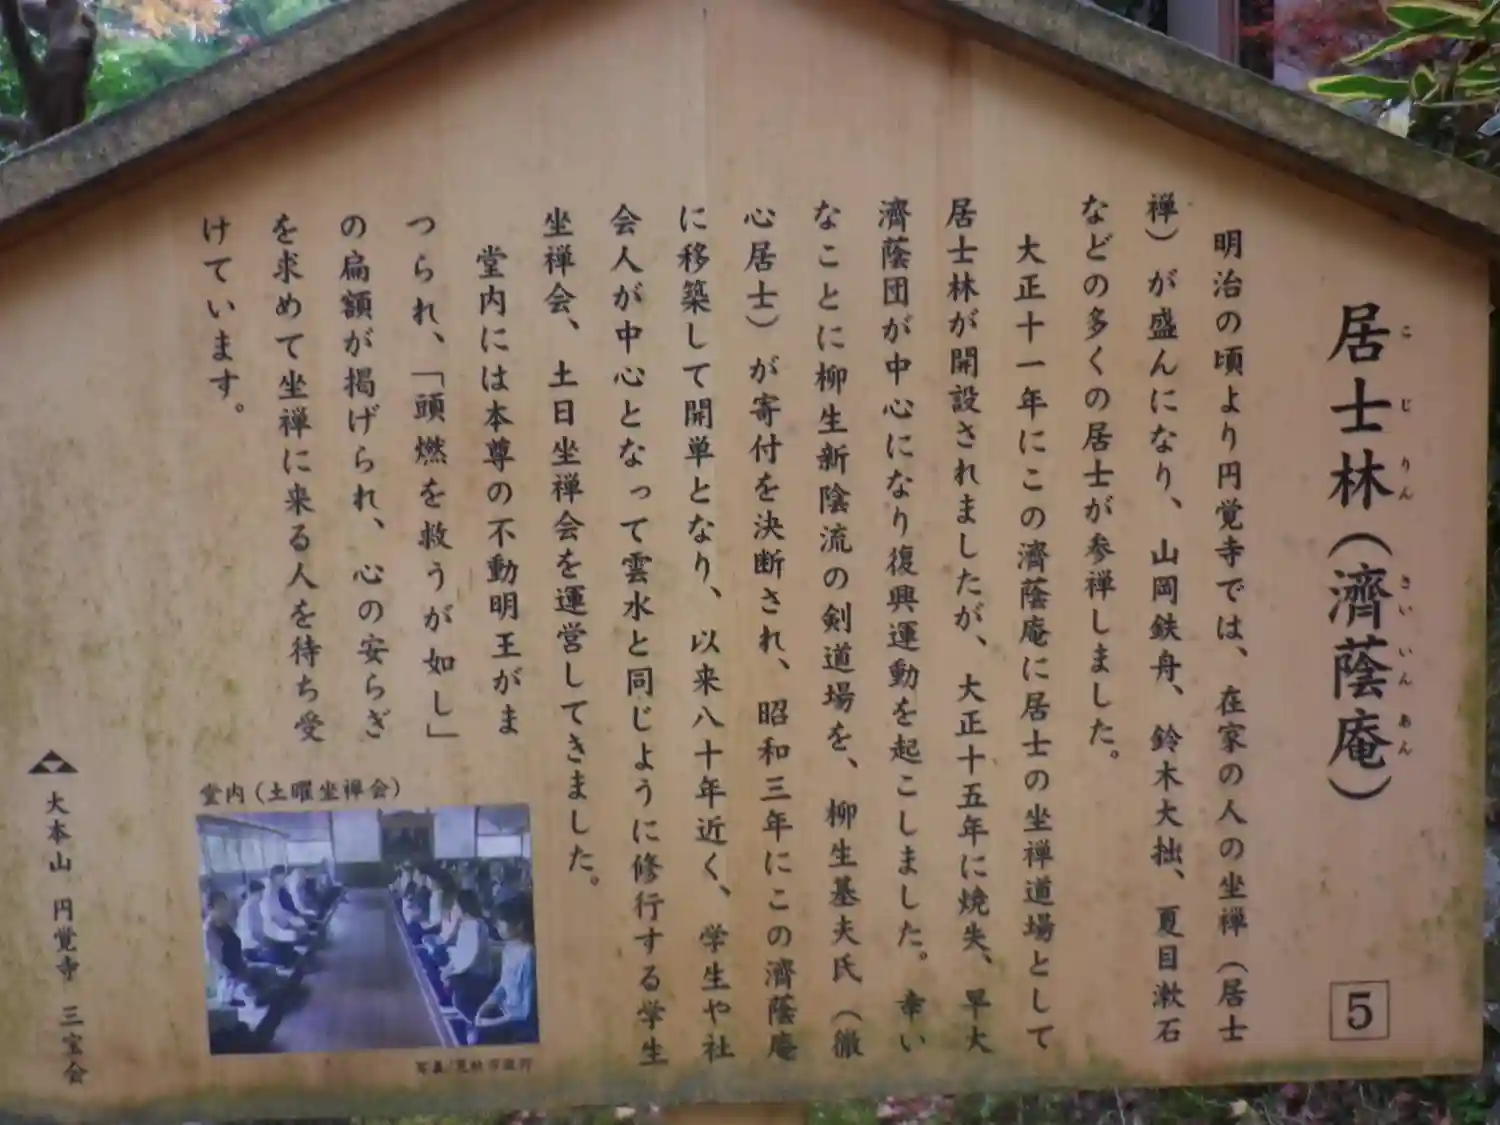 居士林(濟蔭庵)
こじりん さいいんあん
5
明治の頃より円覚寺では、在家の人の坐禅(居士
禅)が盛んになり、山岡鉄舟、鈴木大拙、夏目漱石
などの多くの居士が参禅しました。
大正十一年にこの濟蔭庵に居士の坐禅道場として
居士林が開設されましたが、大正十五年に焼失、早大
濟蔭団が中心になり復興運動を起こしました。幸い
なことに柳生新陰流の剣道場を、柳生基夫氏(徹
心居士)が寄付を決断され、昭和三年にこの濟蔭庵
に移築して開単となり、以来八十年近く、学生や社
会人が中心となって雲水と同じように修行する学生
坐禅会、土日坐禅会を運営してきました。
堂内には本尊の不動明王がま
つられ、「頭燃を救うが如し」
の扁額が掲げられ、心の安らぎ
を求めて坐禅に来る人を待ち受
けています。
堂内(土曜坐禅会)
大本山 円覚寺 三宝会